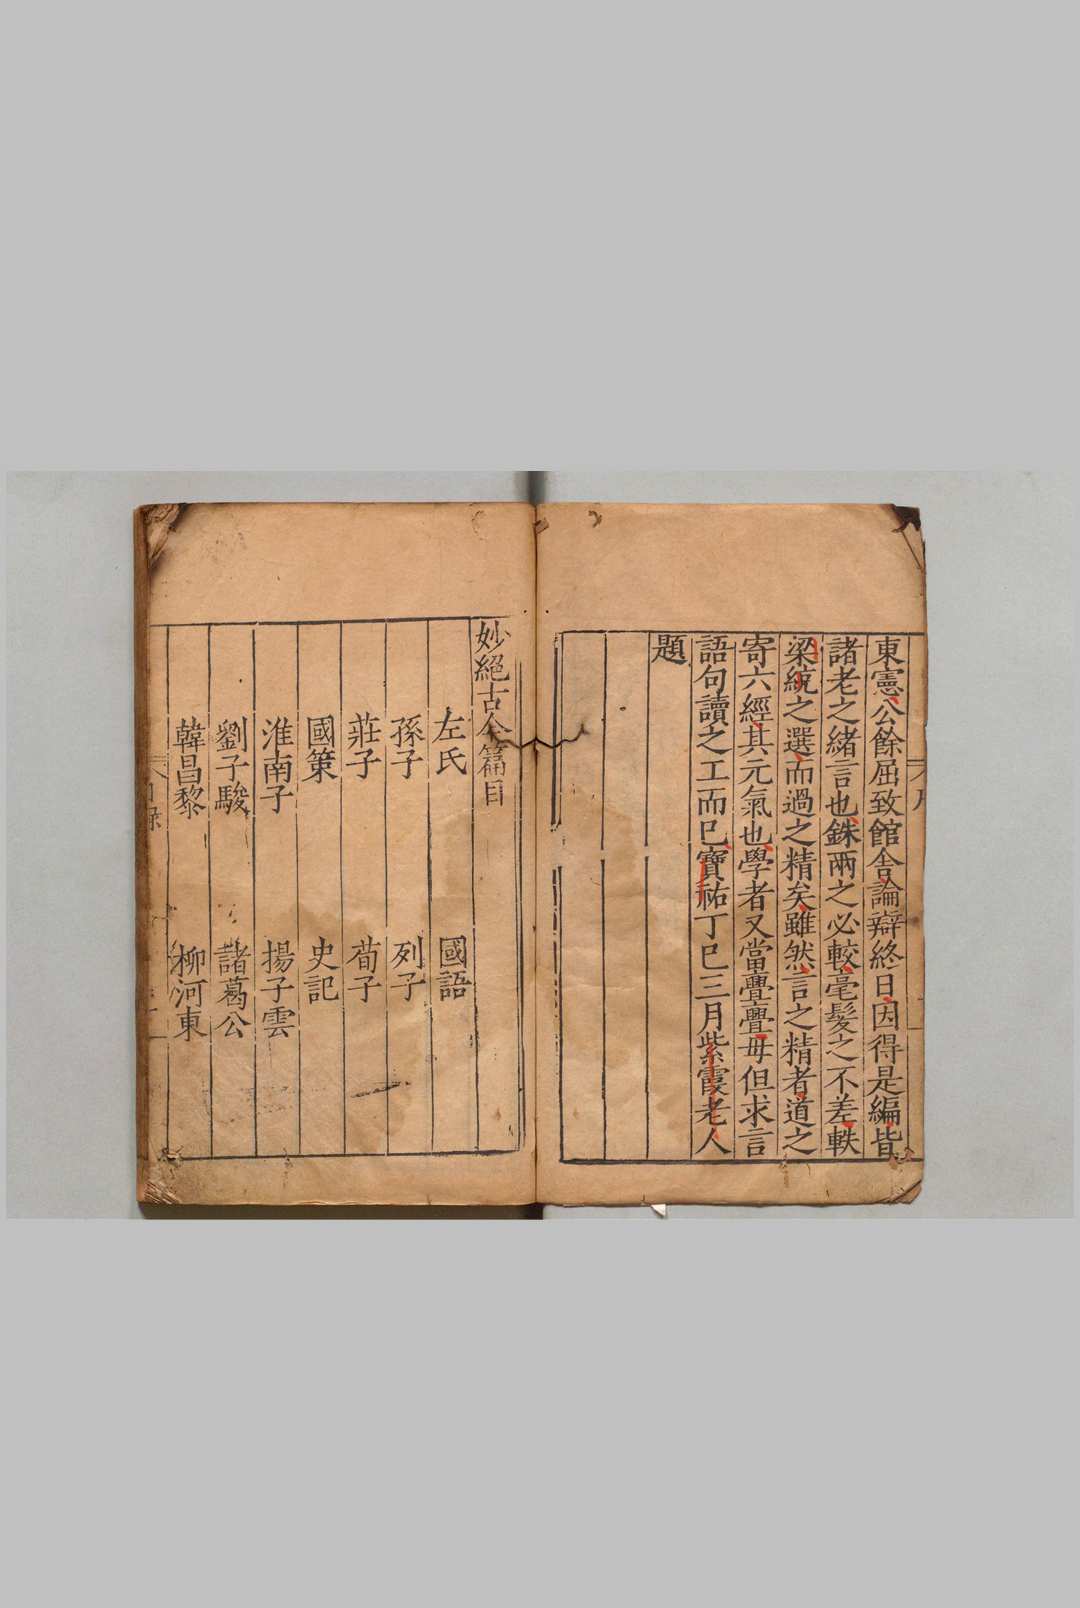 東憲公餘屈致館舍論辯終日因得是編皆
諸老之緒言也銖兩之必較毫髮之不差軼
梁統之選而過之精矣雖然言之精者道之
寄六經其元氣也學者又當亹亹毋但求言
語句讀之工而已寶祐丁巳三月紫霞老人
題
妙絕古今篇目
左氏 國語
孫子 列子
莊子 荀子
國策 史記
淮南子 揚子雲
劉子駿 諸葛公
韓昌黎 柳河東
目錄